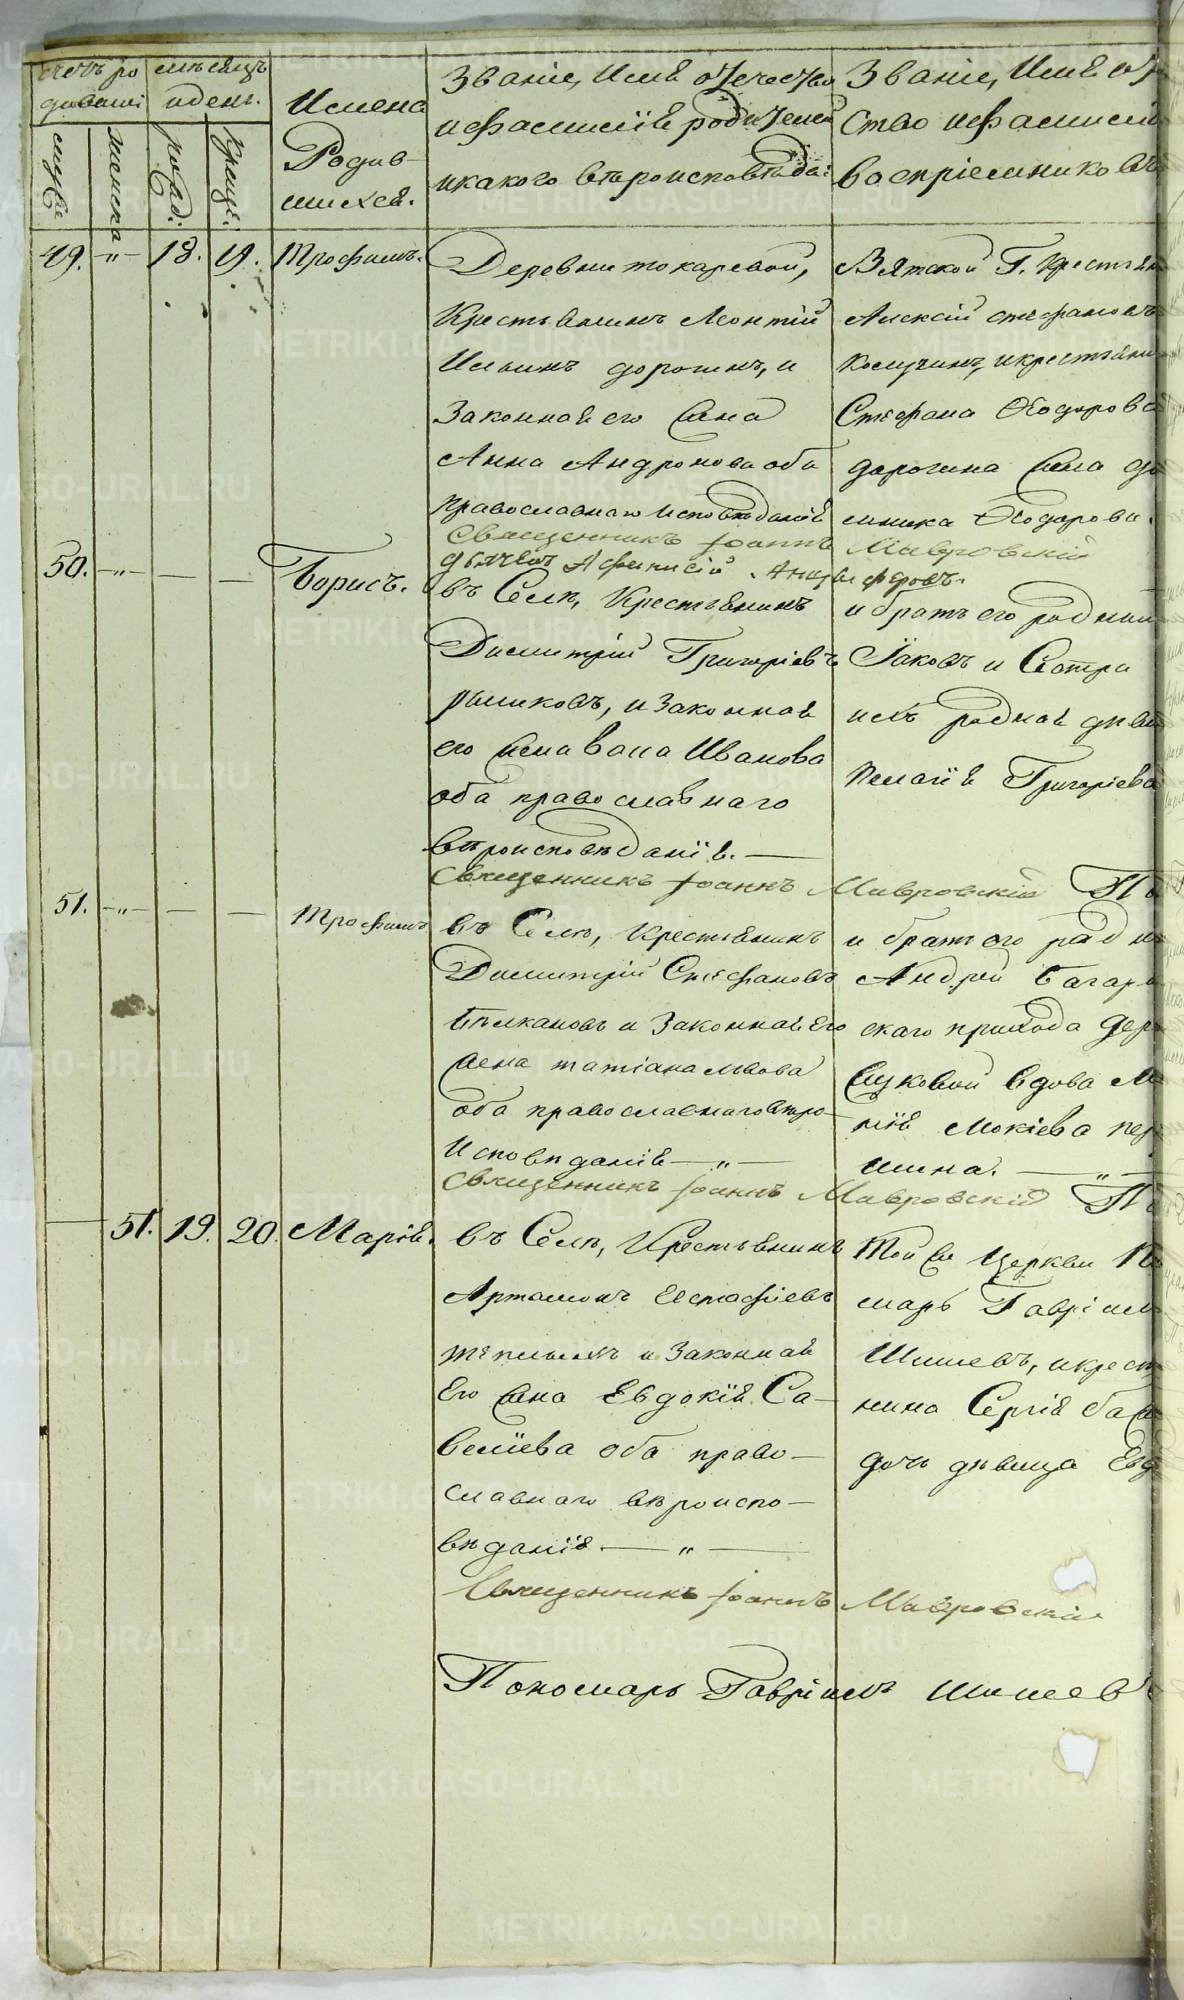 счетъ ро
дившiх
мѣсяцъ
и день.
мужес
женска
рожд:
крещ:
Имена
Родив-
шихся.
Званiе, Имя отчество
и фамилiя родителей
и какого вѣроисповѣда:
Званiе, Имя от
ство и фамилi
воспрiемниковъ
49. " 18. 19. Трофимъ.
Деревни токаревой,
Крестьянинъ Леонтiй
Ильинъ дорогинъ, и
Законная его жена
Анна Андронова оба
православнаго исповѣданiя
Вятской Г. крестьян
Алексiй стефановъ
и крестьяни
Стефана Ѳеодорова
дорогина жена до
мника Ѳеодорова.
Священникъ Iоаннъ Мавровскiй
дьячекъ Афанасiй Анциферовъ.
50. " — — Борисъ.
въ Селѣ, Крестьянинъ
Димитрiй Григорiевъ
рыликовъ, и законная
его жена Иванова
оба православнаго
вѣроисповѣданiя. —
и братъ его родный
Iаковъ и Сестра
имъ родная дѣви
Пелагiя Григорiева
Священникъ Iоаннъ Мавровскiй По
51. " — — Трофимъ
въ Селѣ, Крестьянинъ
Димитрiй Стефановъ
Бѣлкановъ и Законная Его
жена татiана львова
оба православнаго вѣро-
Исповѣданiя — " —
и братъ его родн
Андрей Багар
скаго прихода дер
вдова М
рiя Мокiева пер
шина. — " —
Священникъ Iоаннъ Мавровскiй По
— 51. 19. 20. Марiя.
въ Селѣ, Крестьянинъ
Артамонъ Естафiевъ
и Законная
Его жена Евдокiя Са-
велiева оба право-
славнаго вѣроиспо-
вѣданiя — " —
Той же Церкви По
марь Гаврiил
Шишевъ, и крест
нина Сергiя
дочь дѣвица Евд
Священникъ Iоаннъ Мавровскiй
Пономарь Гаврiилъ Шишевъ
METRIKI.GASO-URAL.RU